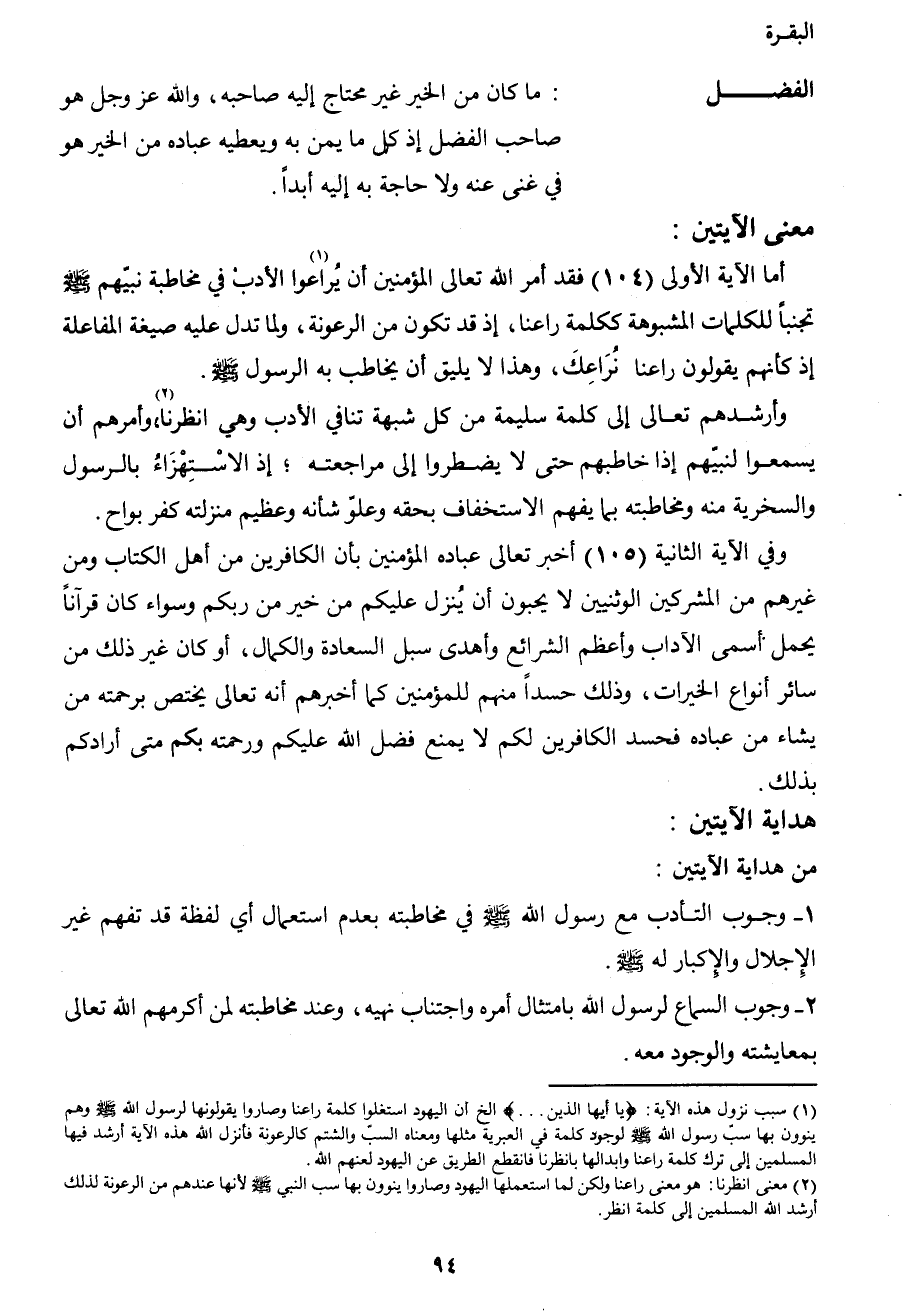 البقـرة
الفضـــــل : ما كان من الخير غير محتاج إليه صاحبه، والله عز وجل هو
صاحب الفضل إذ كل ما يمن به ويعطيه عباده من الخير هو
في غنى عنه ولا حاجة به إليه أبداً.
معنى الآيتين :
أما الآية الأولى (١٠٤) فقد أمر الله تعالى المؤمنين أن يُراعوا(١) الأدبْ في مخاطبة نبيّهم ﷺ
تجنباً للكلمات المشبوهة ككلمة راعنا، إذ قد تكون من الرعونة، ولما تدل عليه صيغة المفاعلة
إذ كأنهم يقولون راعنا نُرَاعِكَ، وهذا لا يليق أن يخاطب به الرسول ﷺ.
وأرشـدهم تعـالى إلى كلمة سليمة من كل شبهة تنافي الأدب وهي انظرنا(٢)،وأمرهم أن
يسمعـوا لنبيّهم إذا خاطبهم حتى لا يضـطروا إلى مراجعتـه ؛ إذ الاسْـتِهْزَاءُ بالـرسول
والسخرية منه ومخاطبته بما يفهم الاستخفاف بحقه وعلوّ شأنه وعظيم منزلته كفر بواح.
وفي الآية الثانية (١٠٥) أخبر تعالى عباده المؤمنين بأن الكافرين من أهل الكتاب ومن
غيرهم من المشركين الوثنيين لا يحبون أن يُنزل عليكم من خير من ربكم وسواء كان قرآناً
يحمل أسمى الآداب وأعظم الشرائع وأهدى سبل السعادة والكمال، أو كان غير ذلك من
سائر أنواع الخيرات، وذلك حسداً منهم للمؤمنين كما أخبرهم أنه تعالى يختص برحمته من
يشاء من عباده فحسد الكافرين لكم لا يمنع فضل الله عليكم ورحمته بكم متى أرادكم
بذلك.
هداية الآيتين :
من هداية الآيتين :
١- وجـوب التـأدب مع رسول الله ﷺ في مخاطبته بعدم استعمال أي لفظة قد تفهم غير
الإجلال والإكبار له ﷺ.
٢- وجوب السماع لرسول الله بامتثال أمره واجتناب نهيه، وعند مخاطبته لمن أكرمهم الله تعالى
بمعايشته والوجود معه.
(١) سبب نزول هذه الآية: ﴿يا أيها الذين...﴾ الخ أن اليهود استغلوا كلمة راعنا وصاروا يقولونها لرسول الله ﷺ وهم
ينوون بها سبّ رسول الله ﷺ لوجود كلمة في العبرية مثلها ومعناه السبّ والشتم كالرعونة فأنزل الله هذه الآية أرشد فيها
المسلمين إلى ترك كلمة راعنا وابدالها بانظرنا فانقطع الطريق عن اليهود لعنهم الله.
(٢) معنى انظرنا: هو معنى راعنا ولكن لما استعملها اليهود وصاروا ينوون بها سب النبي ﷺ لأنها عندهم من الرعونة لذلك
أرشد الله المسلمين إلى كلمة انظر.
٩٤